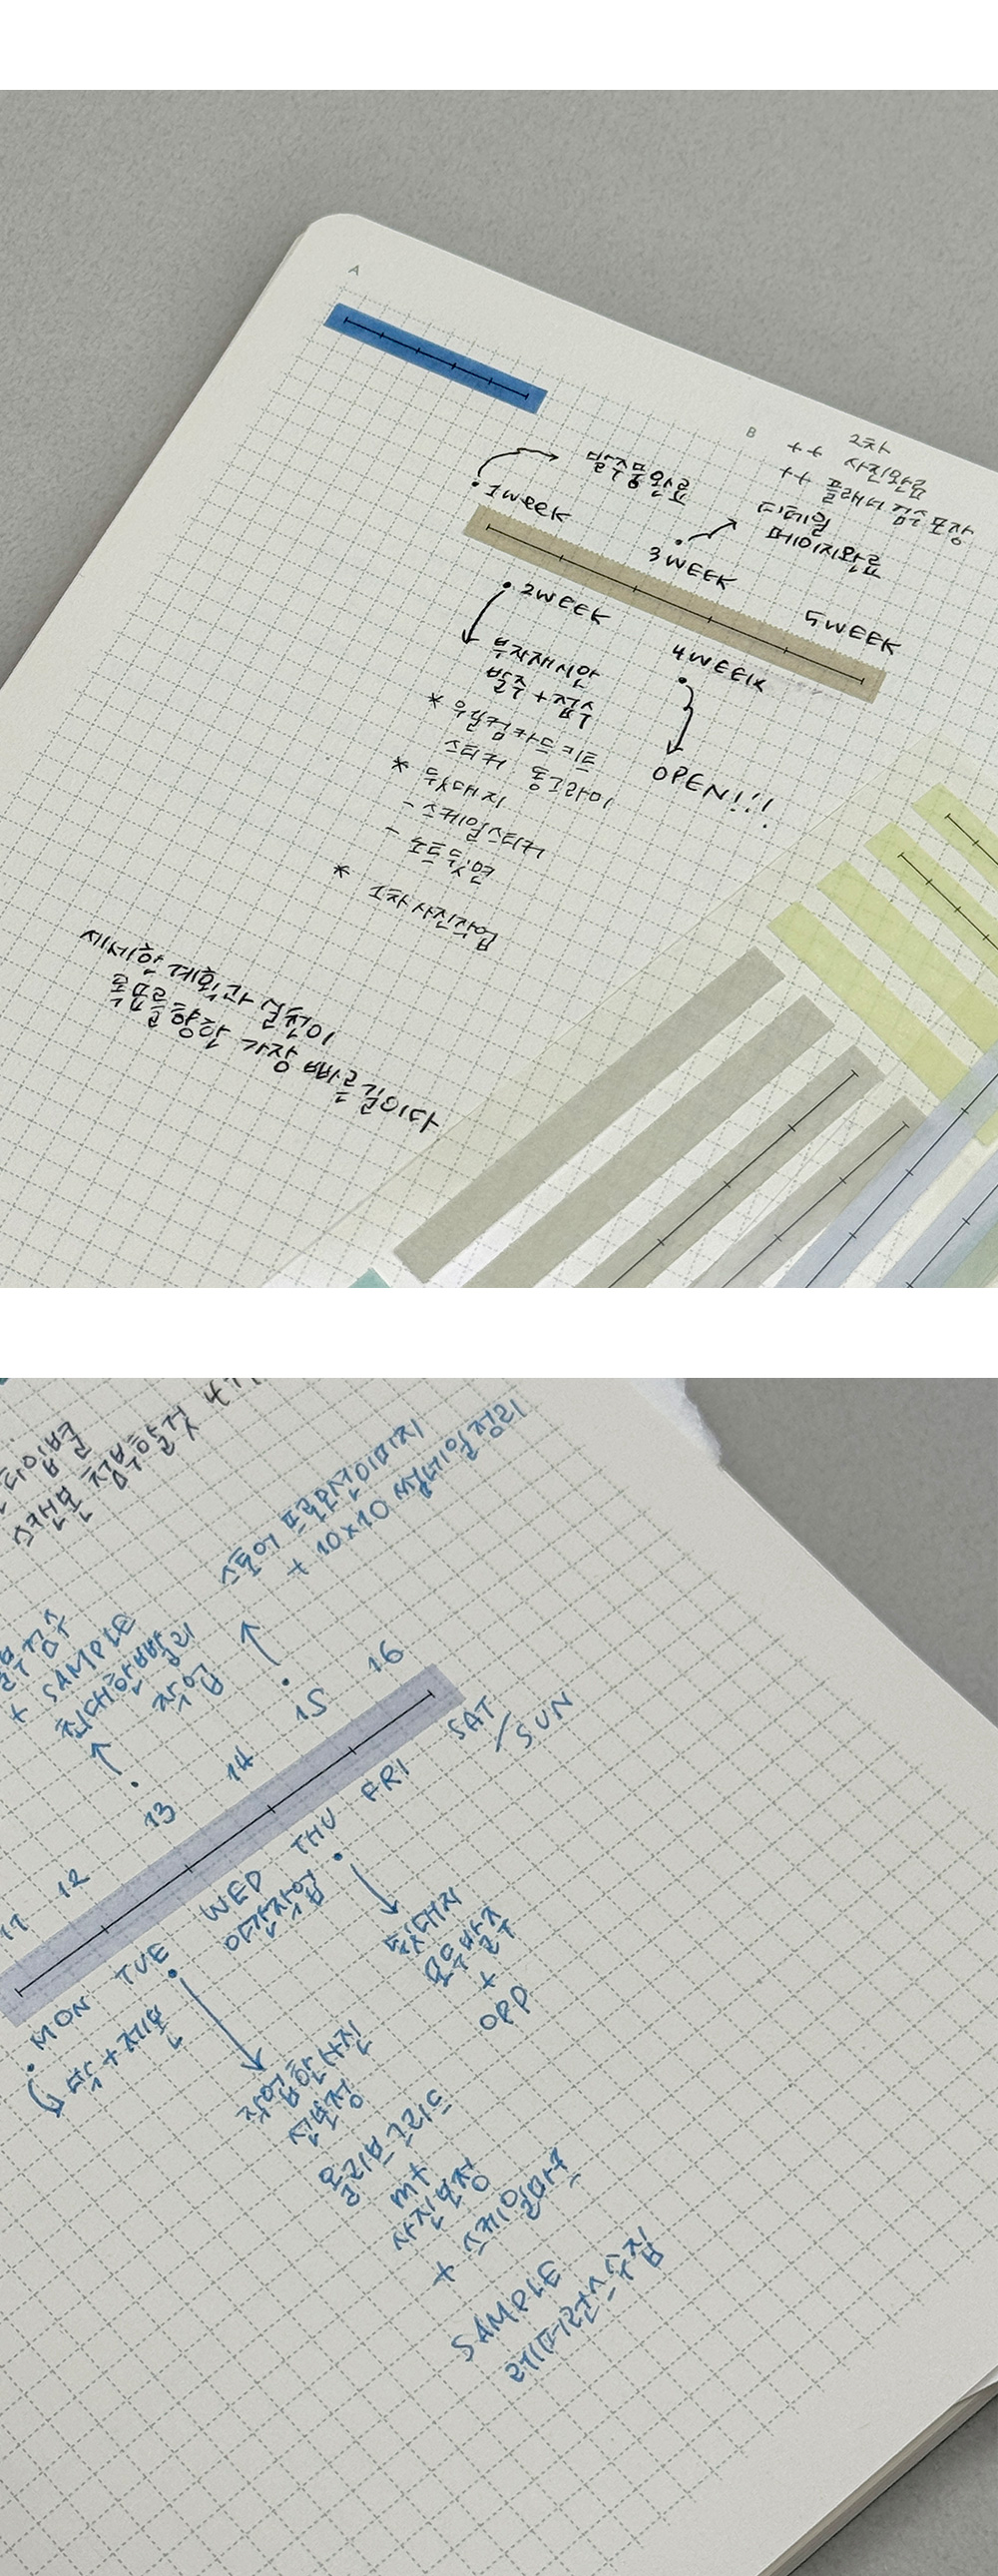 A
B
++ 2차
사진완료
++ 플래너 검수포장
발주물완료
1week
디테일
페이지완료
3WEEK
5WEEK
2WEEK
4WEEK
부자재시안
발주+접수
* 웰컴카드키트
스티커 동그라미
* 뒷대지
- 스케일스티커
- 노트뒷면
* 1차사진작업
OPEN!!!
세세한 계획과 실천이
목표를향한 가장 빠른길이다
타입별
스캔본 첨부할것
스토어 프로모션이미지
+ 10x10 썸네일정리
검수
+ SAMPLE
최대한빨리
작업
11 12 13 14 15 16
MON TUE WED THU FRI SAT/SUN
야간작업
+제본
뒷대지
모두발주
+
OPP
작업한사진
선보정
올리브그리드
MT
사진보정
+ 스케일마주
SAMPLE
레퍼런스수집